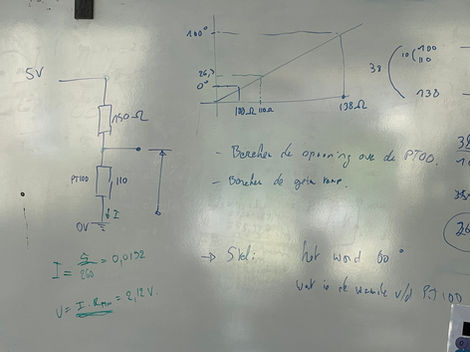 5V
150Ω
PT100
110
I
0V
I = 5/260 = 0,0192
U = I · R = 2,12 V.
100°
26,3
0°
100Ω
110Ω
138Ω
38
10
100
110
138
- Bereken de spanning over de PT100.
- Bereken de
→ Stel: het word 60°
wat is de v/d PT100